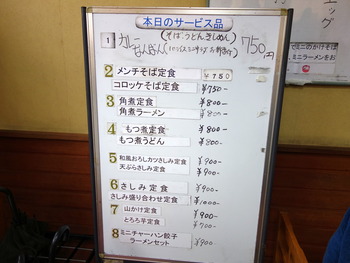 本日のサービス品
1 カレー (そば、うどん、きしめん) 750円
2 メンチそば定食 ¥750
コロッケそば定食 ¥750-
3 角煮定食 ¥800-
角煮ラーメン ¥800-
4 もつ煮定食 ¥800-
もつ煮うどん ¥800-
5 和風おろしカツさしみ定食 ¥900-
天ぷらさしみ定食 ¥900-
6 さしみ定食 ¥900-
さしみ盛り合わせ定食 ¥1000-
7 山かけ定食 ¥900-
とろろ芋定食 ¥900-
8 ミニチャーハン餃子
ラーメンセット ¥900
エッグ
でミニのかけそば
ミニラーメンをお